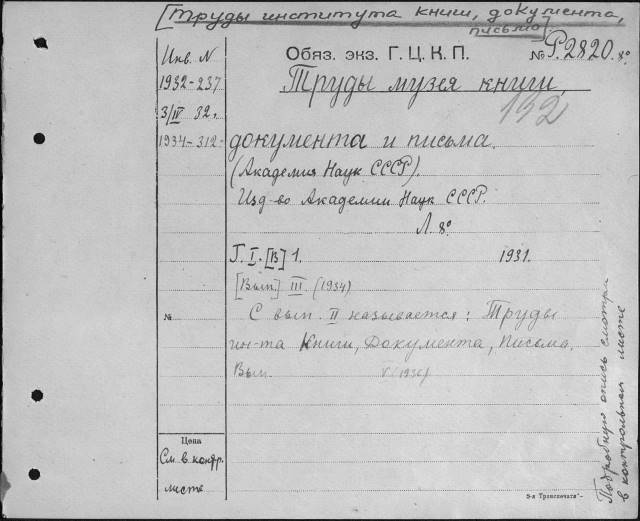 [Труды института книги, документа,
письма]
Инв. N
Обяз. экз. Г.Ц.К.П.
№ Р.2820. 8°
1932-237
Труды музея книги,
3/IV 32.
192
1934-312-
документа и письма.
(Академия Наук СССР).
Изд-во Академии Наук СССР.
Л. 8°
Г. I. [В] 1. 1931.
[Вып.] III (1934)
№
С вып. II называется: Труды
ин-та Книги, Документа, Письма.
Вып. V (1936)
Цена
См в контр.
листе
Подробную опись смотри
в контрольном листе
9-я Транспечати"-